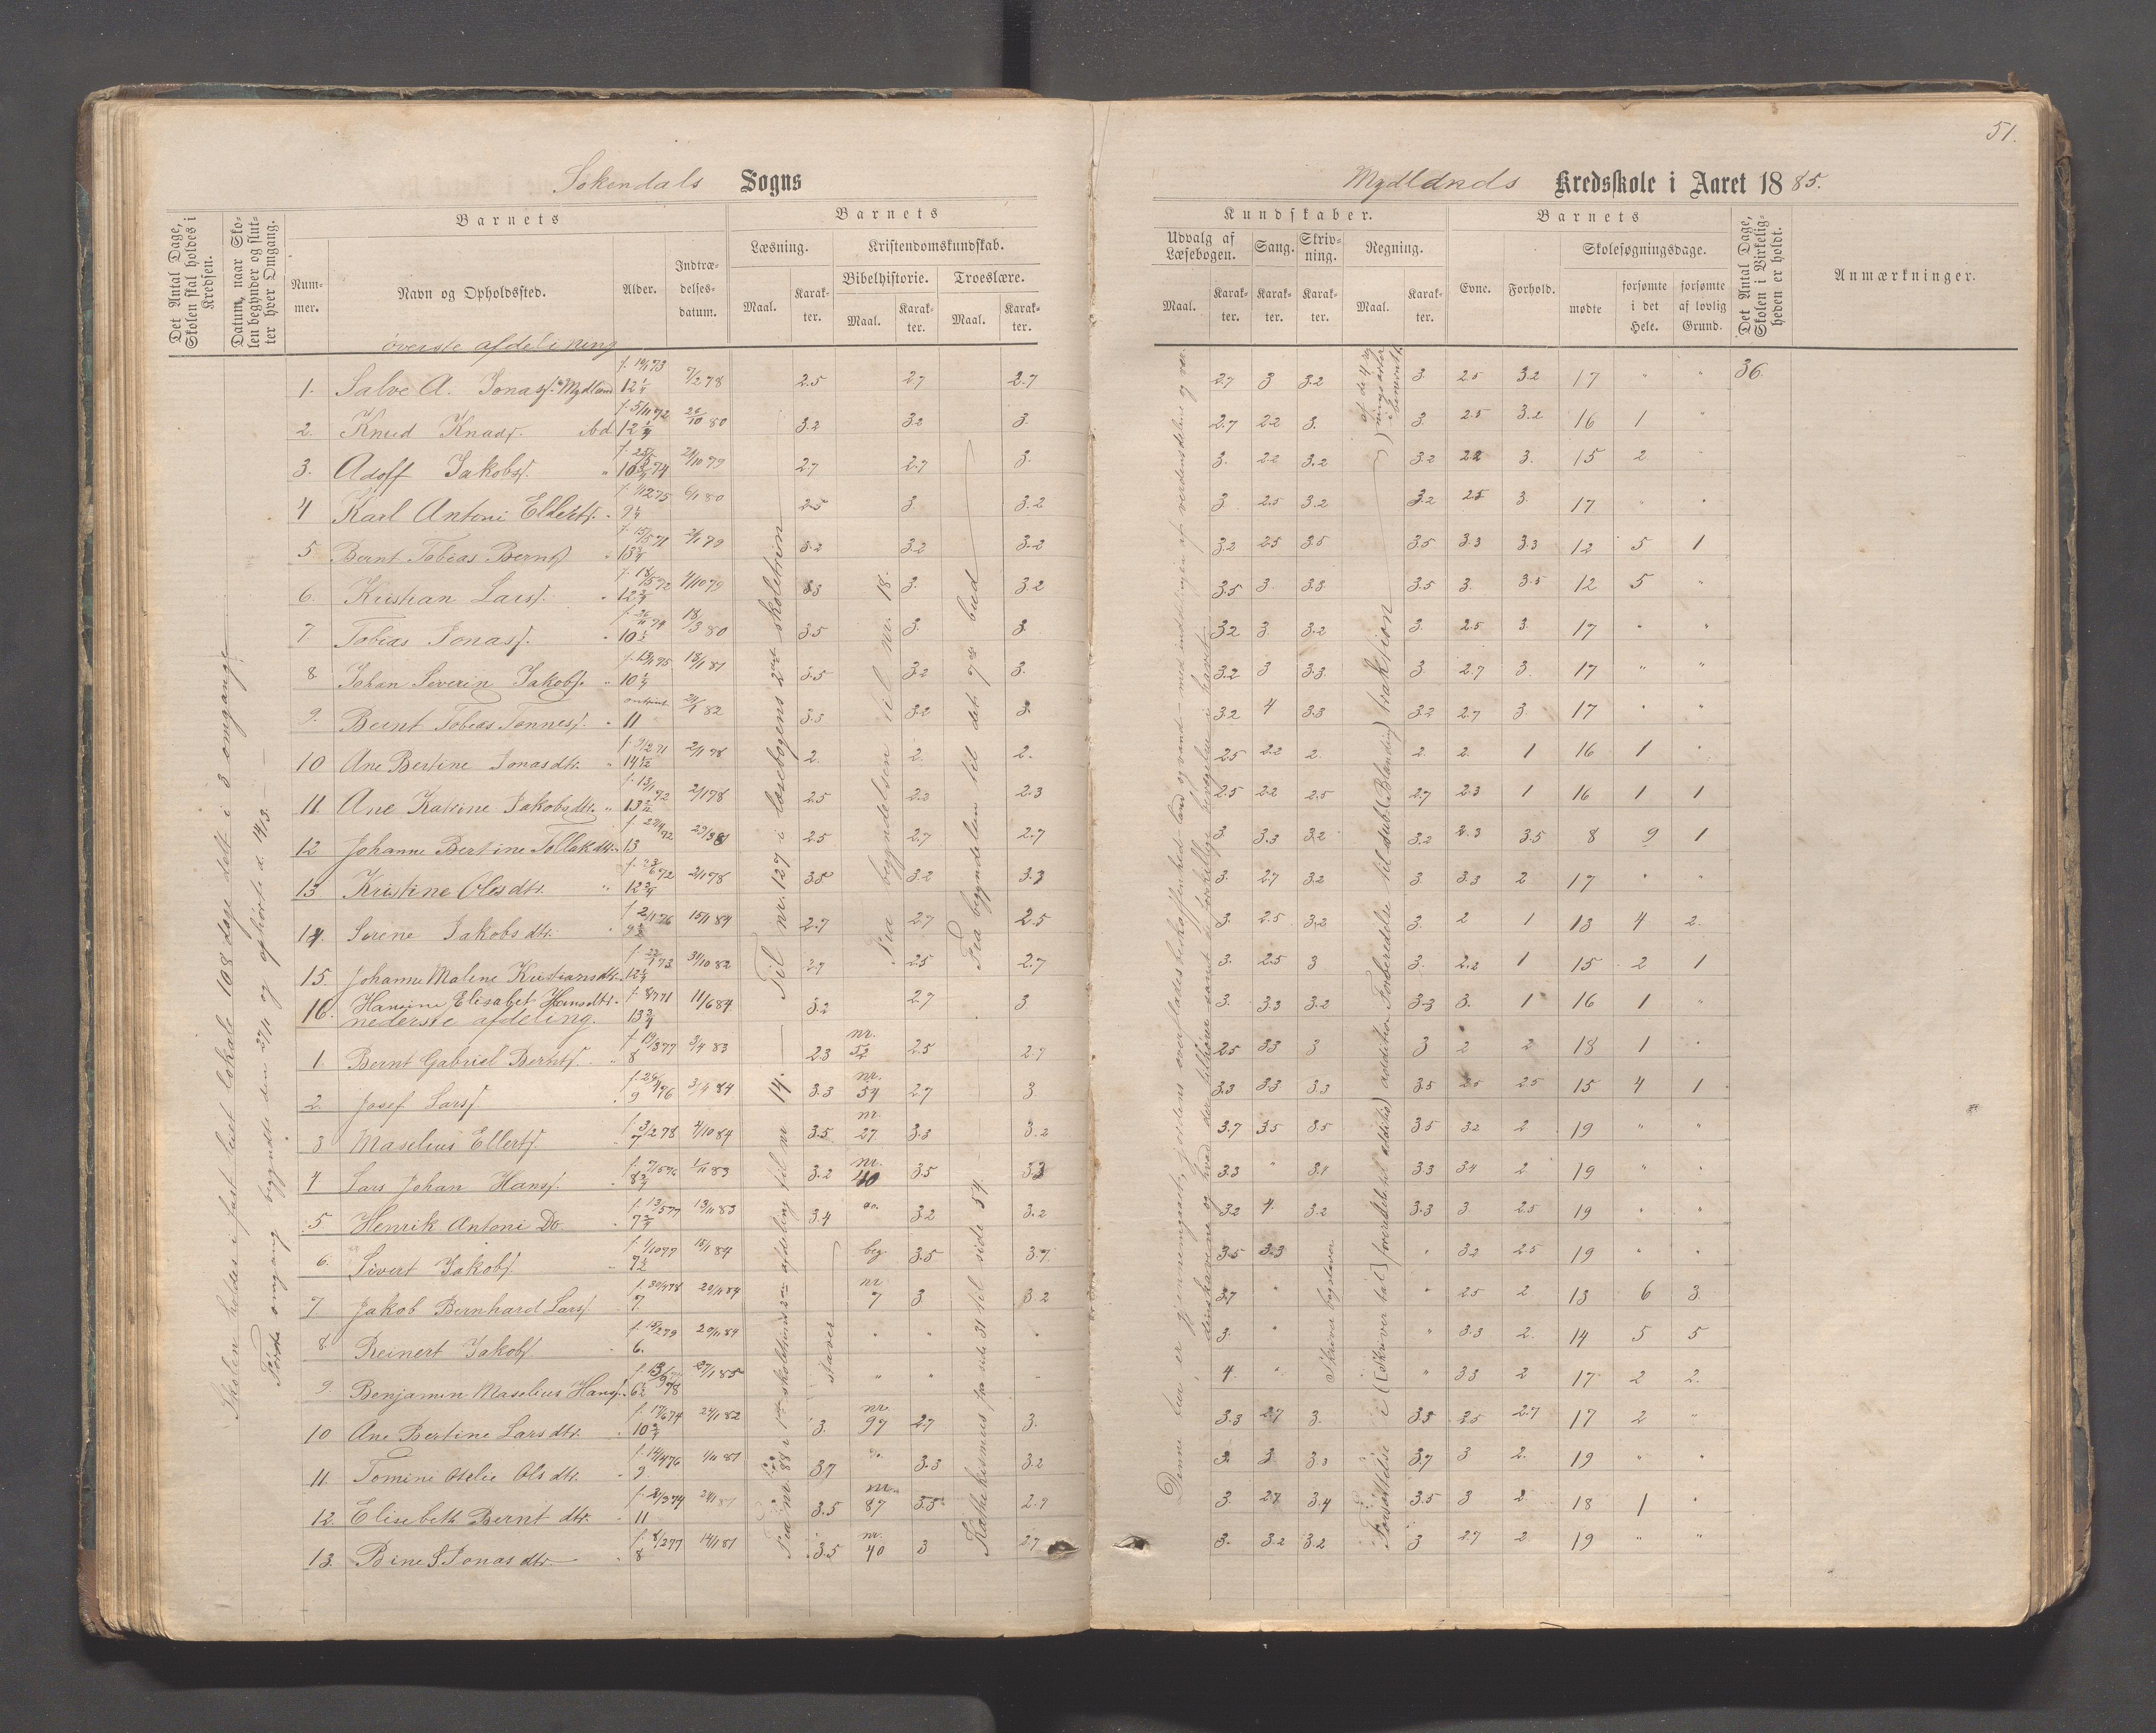 51.
Sokendals Sogns
Mydlands Kredsskole i Aaret 1885.
Det Antal Dage, Skolen skal holdes i Kredsen.
Datum, naar Skolen begynder og slutter hver Omgang.
Barnets
Nummer.
Navn og Opholdssted.
Alder.
Indtrædelsesdatum.
Barnets
Læsning.
Maal.
Karakter.
Kristendomskundskab.
Bibelhistorie.
Maal.
Karakter.
Troeslære.
Maal.
Karakter.
Kundskaber.
Udvalg af Læsebogen.
Maal.
Karakter.
Sang.
Karakter.
Skrivning.
Karakter.
Regning.
Maal.
Karakter.
Barnets
Evne.
Forhold.
Skolesøgningsdage.
mødte
forsømte i det Hele.
forsømte af lovlig Grund.
Det Antal Dage, Skolen i Virkeligheden er holdt.
Anmærkninger.
øverste afdeling
1. Salve A. Jonass. Mydland 12 1/4 7/2 78 2.5 2.7 2.7 2.7 3 3.2 3. 2.5 3.2 17 " " 36.
2. Knud Knuds. ibd 12 1/4 26/10 80 3.2 3.2 3. 2.7 2.2 3. 3. 2.5 3.2 16 1 "
3. Adoff Jakobs. " 24/10 79 2.7 2.7 3. 3. 2.2 3.2 3.2 2.2 3. 15 2 "
4 Karl Antoni Ellerts. " 9 1/4 6/1 80 2.5 3 3.2 3 2.5 3.2 3.2 2.5 3. 17 " "
5 Bernt Tobias Bernts. " 13 3/4 2/1 79 3.2 3.2 3.2 3.2 2.5 3.5 3.5 3.3 3.3 12 5 1
6. Kristian Lars. " 12 3/4 4/10 79 3.3 3. 3.2 3.5 3. 3.3 3.5 3. 3.5 12 5 "
7 Tobias Jonass. " 10 1/2 18/3 80 3.5 3. 3. 3.2 3. 3.2 3. 2.5 3. 17 " "
8 Johan Severin Jakobs. " 10 1/4 18/1 81 3.5 3.2 3. 3.2 3 3.3 3 2.7 3. 17 " "
9. Bernt Tobias Tønness. " 11 24/1 82 3.5 3.2 3. 3.2 4 3.3 3.2 2.7 3. 17 " "
10 Ane Bertine Jonasdtr. " 2/1 78 2. 2. 2. 2.5 2.2 2. 2. 2. 1 16 1 "
11. Ane Katrine Jakobsdtr. " 2/1 78 2.5 2.3 2.3 2.5 2.2 2.5 2.7 2.3 1 16 1 1
12 Johanne Bertine Tollakdtr. 13 2.5 2.7 2.7 3. 3.3 3.2 3.2 2.3 3.5 8 9 1
13 Kristine Olesdtr. " 12 3/4 2/1 78 3.5 3.2 3.3 3. 2.7 3.2 3. 3.3 2 17 " "
14. Serene Jakobsdtr. " 15/1 84 2.7 2.7 2.5 3. 2.5 3.2 3. 2 1 13 4 2.
15. Johanne Malene Kristiansdtr. 12 1/4 31/10 82 2.7 2.5 2.7 3. 2.5 3 3. 2.2 1 15 2 1
16. Hansine Elisabet Hansdtr. 13 3/4 11/6 84 3.2 2.7 3 3. 3.3 3.2 3.3 3. 1 16 1 "
nederste afdeling.
1. Bernt Gabriel Bernts. " 8 3/4 83 2.3 nr. 52 2.5 2.7 2.5 3.3 3 3 2 2 18 1 "
2. Josef Lars. " 9 3/4 84 3.3 nr. 54 2.7 3. 3.3 3.3 3.3 3.5 2.5 2.5 15 4 1
3 Maselius Ellerts. " 7 4/10 84 3.5 nr. 27 3.3 3.2 3.7 3.5 3.5 3.5 3.2 2 19 " "
4 Lars Johan Hans. " 8 3/4 1/11 83 3.2 nr. 40 3.5 3.3 3.3 " 3.1 3.3 3.4 2 19 " "
5 Henrik Antoni Do " 13/11 83 3.4 3.2 3.2 3.2 4. 3.2 3.3 3 2.5 19 " "
6. Sivert Jakobs. " 7 1/2 15/1 84 beg. 3.5 3.7 3.5 3.3 " 3.2 2.5 19 " "
7. Jakob Bernhard Lars. 7. 29/11 84 nr 7 3 3.2 3.7 " " 2.5 2 13 6 3.
8 Reinert Jakobs. " 6. 20/11 84 " " " 3. " " 3.3 2. 14 5 5
9 Benjamin Maselius Hans. 6 1/2 27/1 85 " " " 4. " " 3.3 2 17 2 2.
10 Ane Bertine Larsdtr. " 10 3/4 24/1 82 3. nr. 97 2.7 3. 3.3 2.7 3. 3.3 2.5 2.7 17 2 "
11. Tomine Otelie Olsdtr. " 9. 4/11 81 3.7 3.3 3.2 3 3. 3.3 3.7 3 2. 19 " "
12. Elisebeth Berntdtr. " 11 3.5 nr. 87 3.5 2.9 3. 2.7 3.4 3.5 3 2. 18 1 "
13. Bine S Jonasdtr. " 8 14/1 81 3.5 nr. 40 3 2.7 3. 3.2 3.2 3 2.7 2 19 " "
Skolen holdes i fast huset lokale 108 dage delt i 3 omgange
Første omgang begyndte den 27/1 og ophørte d. 14/3.
Til nr. 127 i læsebogens 2det skoletrin
Fra nr. 88 i 1ste skoletrins 2den afdeling til nr 14.
staver
Fra begyndelsen til nr. 18.
Fra begyndelsen til det 7de bud
Katekismes fra side 31 til side 54.
Denne bue, er gjennemgaaet, jordens overfladesbeskaffenhed land og vand – med inddelingen af verdensdelene og ver-
denshavene og hvad der tilhører samt de forskellige bevægelser i havet.
af de 4 regningsarter i benævnte
Skriver bogstaver
Forsættelse i (Skriver tal) foreredelse til additio) addition Forberedelse til sub (Blanding) traksion